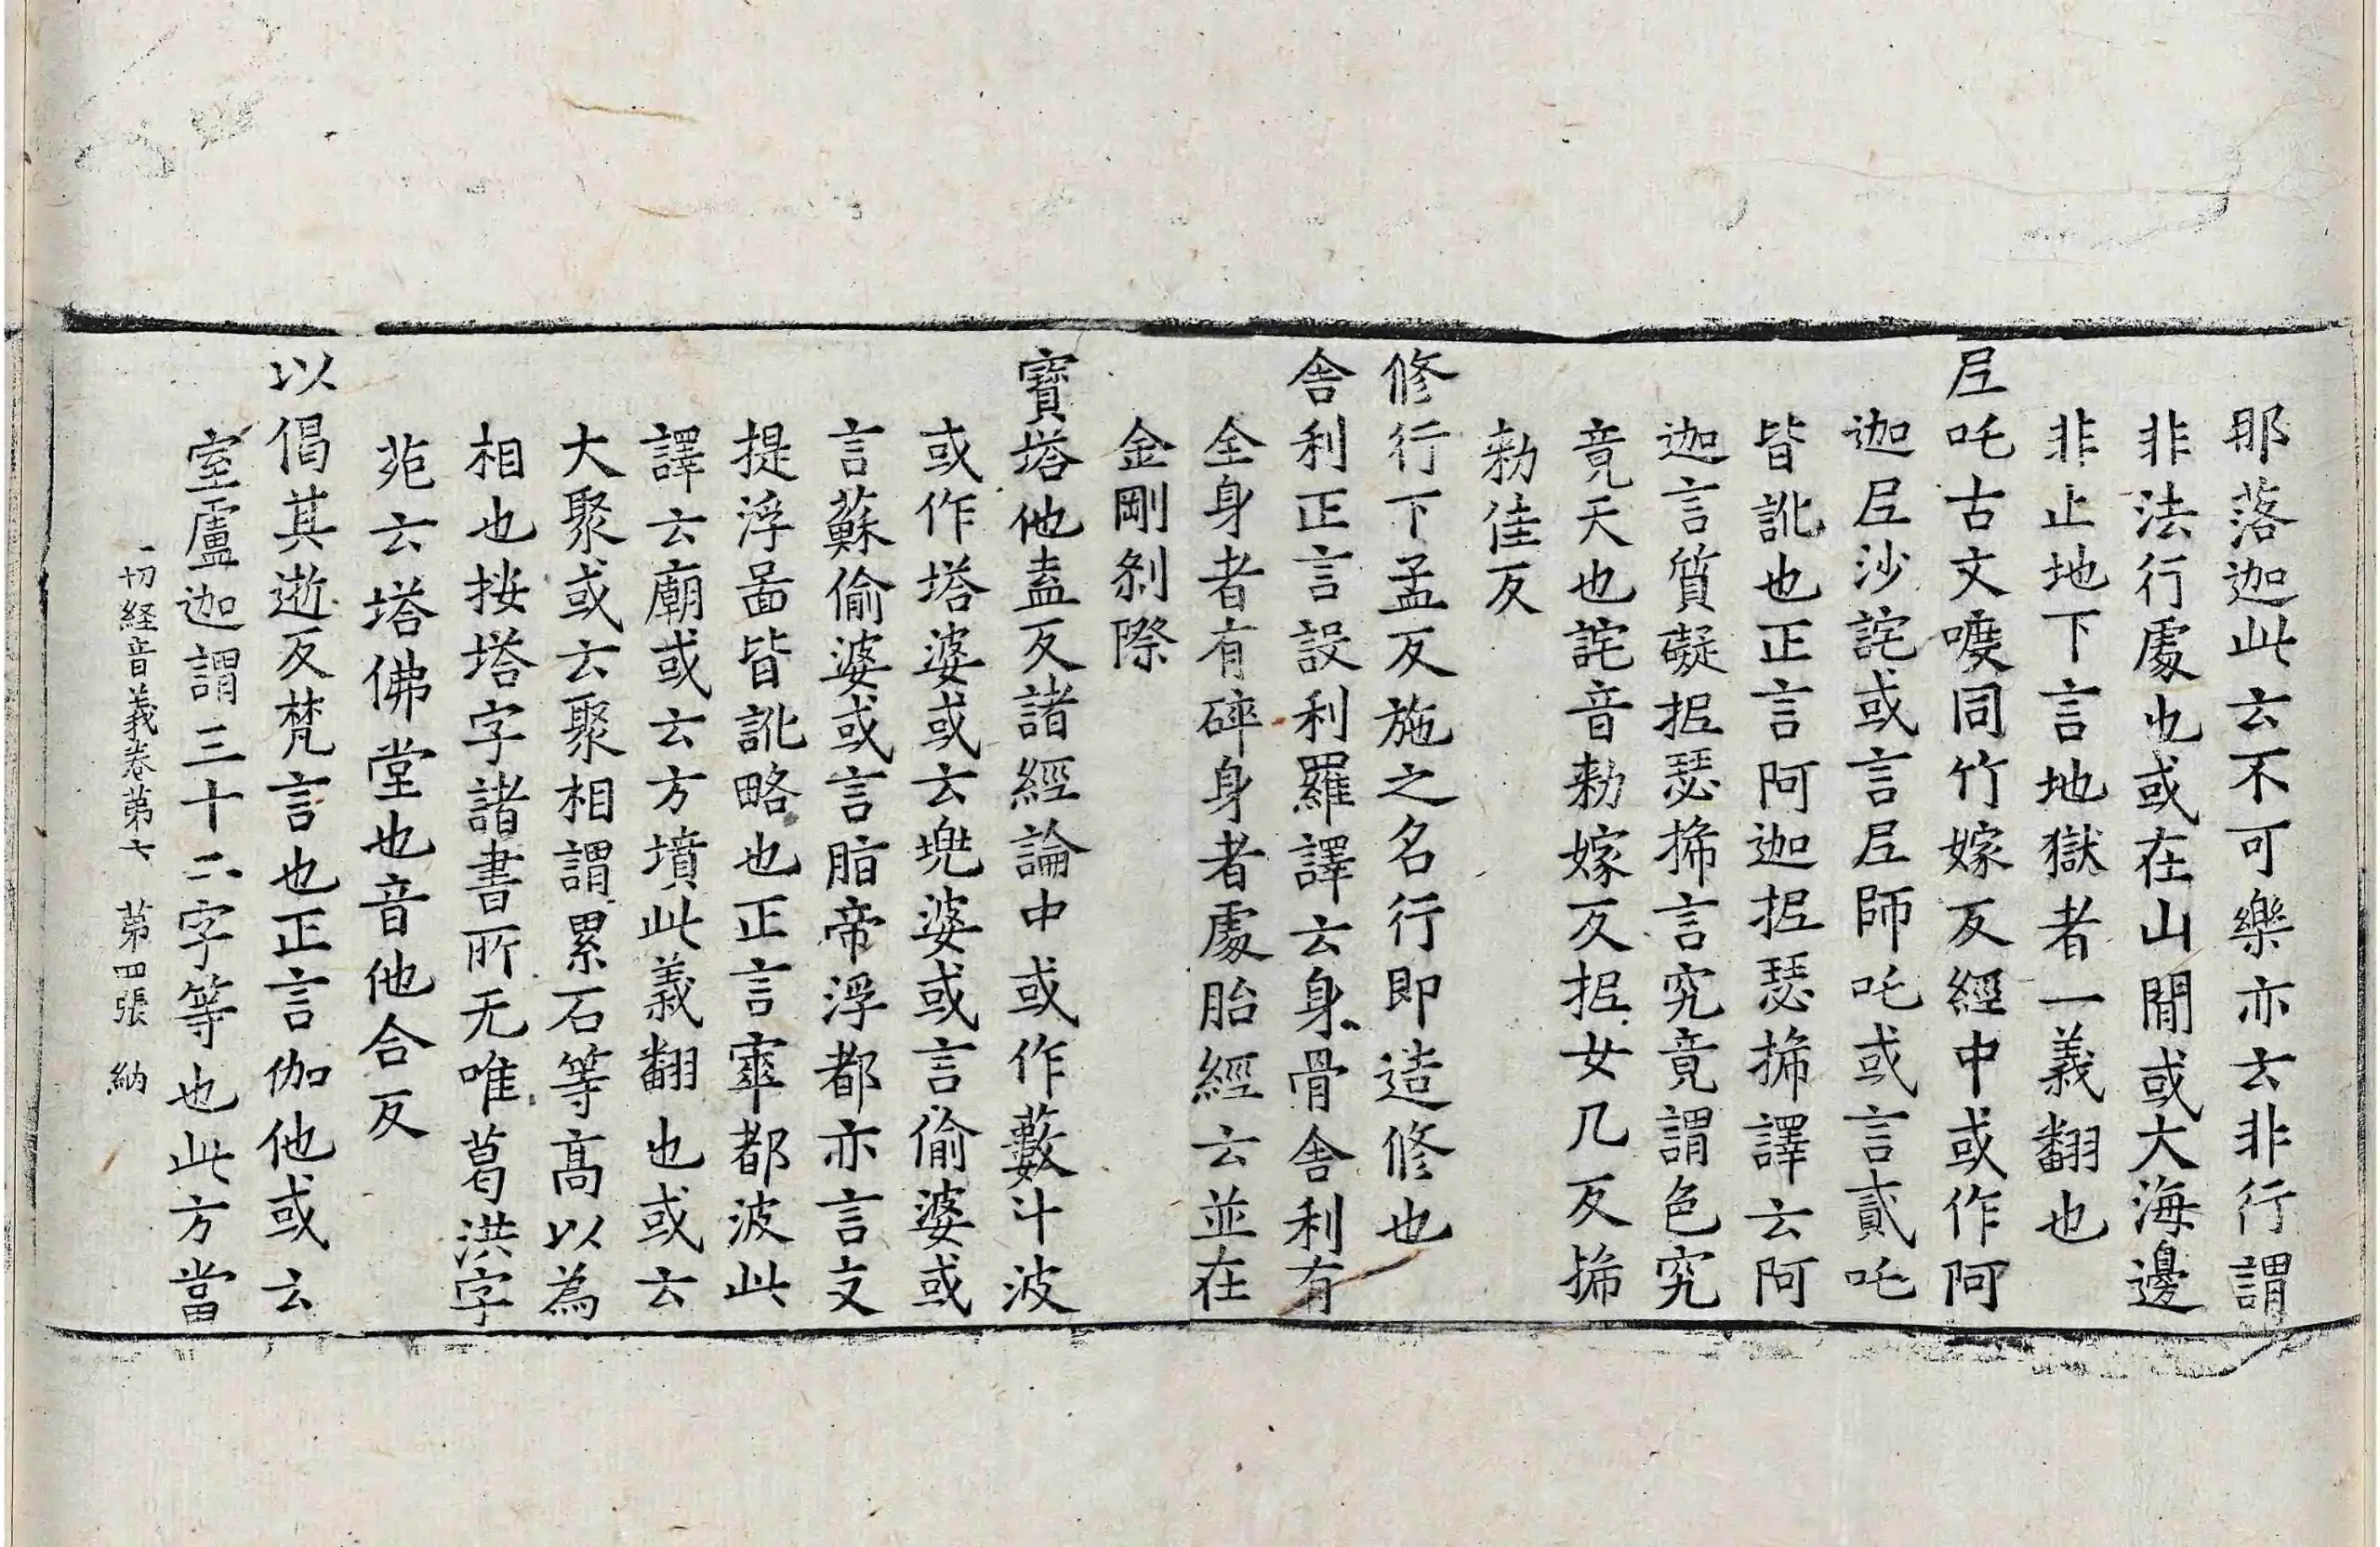 那落迦此云不可樂亦云非行謂
非法行處也或在山閒或大海邊
非止地下言地獄者一義翻也
𡰱吒古文㖠同竹嫁反經中或作阿
迦𡰱沙詫或言𡰱師吒或言貳吒
皆訛也正言阿迦抳瑟搋譯云阿
迦言質礙抳瑟搋言究竟謂色究
竟天也詫音勑嫁反抳女几反搋
勑佳反
修行下孟反施之名行即造修也
舎利正言設利羅譯云身骨舎利有
全身者有碎身者處胎經云並在
金剛刹際
寶塔他盍反諸經論中或作藪斗波
或作塔婆或云兠婆或言偷婆或
言蘇偷婆或言脂帝浮都亦言支
提浮啚皆訛略也正言窣都波此
譯云廟或云方墳此義翻也或云
大聚或云聚相謂累石等高以為
相也按塔字諸書所无唯葛洪字
苑云塔佛堂也音他合反
以偈其逝反梵言也正言伽他或云
室盧迦謂三十二字等也此方當
一切経音義卷苐六　苐四張　納